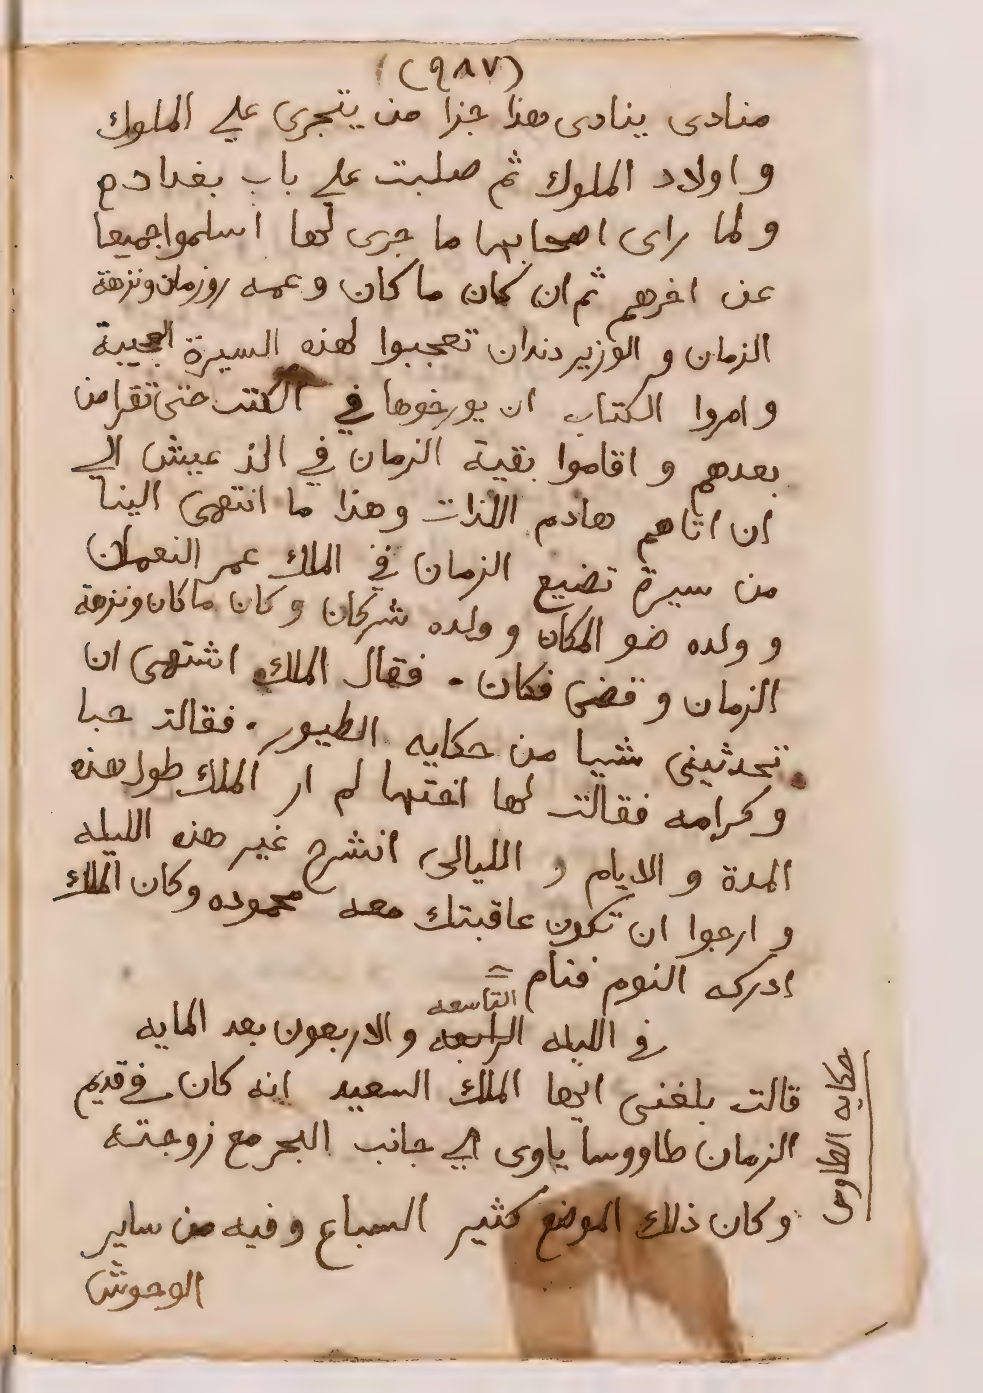 (٩٨٧)
منادى ينادى هذا جزا من يتجرى على الملوك
و اولاد الملوك ثم صلبت على باب بغداد
و لما راى اصحابها ما جرى لها اسلموا جميعا
عن اخرهم ثم ان كان ما كان و عمه روزمان ونزهة
الزمان و الوزير دندان تعجبوا لهذه السيرة العجيبة
و امروا الكتاب ان يورخوها في الكتب حتى تقرا من
بعدهم و اقاموا بقية الزمان في الذ عيش الي
ان اتاهم هادم اللذات وهذا ما انتهى الينا
من سيرة تضيع الزمان في الملك عمر النعمان
و ولده ضو المكان و ولده شركان و كان ما كان ونزهة
الزمان و قضى فكان . فقال الملك اشتهى ان
تحدثينى شييا من حكايه الطيور . فقالت حبا
و كرامه فقالت لها اختها لم ار الملك طول هذه
المدة و الايام و الليالى انشرح غير هذه الليله
و ارجوا ان تكون عاقبتك معه محموده وكان الملك
ادركه النوم فنام
التاسعه
في الليله الرابعه و الاربعون بعد المايه
قالت بلغنى ايها الملك السعيد انه كان في قديم
الزمان طاووسا ياوى الي جانب البحر مع زوجته
و كان ذلك الموضع كثير السباع و فيه من ساير
الوحوش
حكايه الطاوس